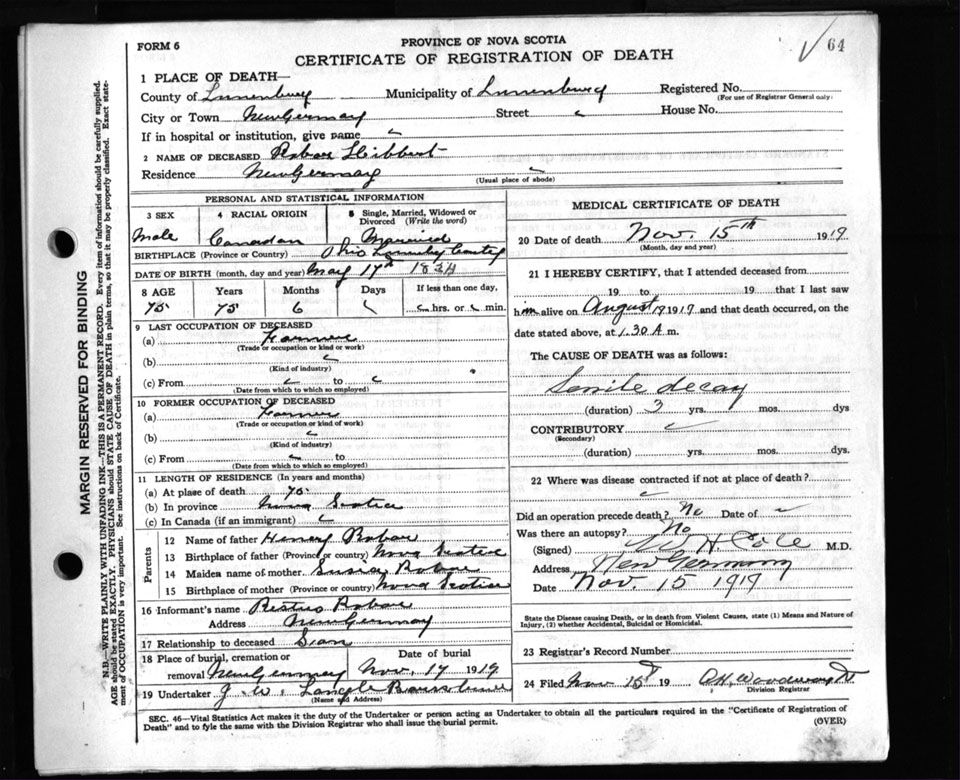 FORM 6
PROVINCE OF NOVA SCOTIA
CERTIFICATE OF REGISTRATION OF DEATH
64
1 PLACE OF DEATH—
County of Lunenburg Municipality of Lunenburg Registered No.
(For use of Registrar General only)
City or Town New Germany Street House No.
If in hospital or institution, give name
2 NAME OF DECEASED Robar Hibbert
Residence New Germany
(Usual place of abode)
PERSONAL AND STATISTICAL INFORMATION
3 SEX 4 RACIAL ORIGIN 5 Single, Married, Widowed or Divorced (Write the word)
Male Canadian Married
BIRTHPLACE (Province or Country) Ohio
DATE OF BIRTH (month, day and year) May 17th
8 AGE Years Months Days If less than one day.
75 75 6 hrs. or min.
9 LAST OCCUPATION OF DECEASED
(a) Farmer
(Trade or occupation or kind or work)
(b)
(Kind of industry)
(c) From to
(Date from which to which so employed)
10 FORMER OCCUPATION OF DECEASED
(a) Farmer
(Trade or occupation or kind of work)
(b)
(Kind of industry)
(c) From to
(Date from which to which so employed)
11 LENGTH OF RESIDENCE (In years and months)
(a) At place of death 75
(b) In province Nova Scotia
(c) In Canada (if an immigrant)
Parents
12 Name of father Henry Robar
13 Birthplace of father (Province or country) Nova Scotia
14 Maiden name of mother Susia Robar
15 Birthplace of mother (Province or country) Nova Scotia
16 Informant's name Restus Robar
Address New Germany
17 Relationship to deceased Son
18 Place of burial, cremation or removal New Germany Date of burial Nov. 17 1919
19 Undertaker J. W.
(Name and Address)
MEDICAL CERTIFICATE OF DEATH
20 Date of death Nov. 15th 1919
(Month, day and year)
21 I HEREBY CERTIFY, that I attended deceased from
19 to 19 that I last saw
him alive on August 1919 and that death occurred, on
date stated above, at 1.30 A m.
The CAUSE OF DEATH was as follows:
Senile decay
(duration) 3 yrs. mos. dys
CONTRIBUTORY
(Secondary)
(duration) yrs. mos. dys.
22 Where was disease contracted if not at place of death?
Did an operation precede death? No Date of
Was there an autopsy? No
(Signed) H. Cole M.D.
Address New Germany
Date Nov. 15 1919
State the Disease causing Death, or in death from Violent Causes, state (1) Means and Nature of
Injury, (2) whether Accidental, Suicidal or Homicidal.
23 Registrar's Record Number
24 Filed Nov 15th 19
Division Registrar
SEC. 46—Vital Statistics Act makes it the duty of the Undertaker or person acting as Undertaker to obtain all the particulars required in the "Certificate of Registration of
Death" and to fyle the same with the Division Registrar who shall issue the burial permit.
(OVER)
MARGIN RESERVED FOR BINDING
N.B.—WRITE PLAINLY WITH UNFADING INK—THIS IS A PERMANENT RECORD. Every item of information should be carefully supplied.
AGE should be stated EXACTLY. PHYSICIANS should STATE CAUSE OF DEATH in plain terms, so that it may be properly classified. Exact state-
ment of OCCUPATION is very important. See instructions on back of Certificate.